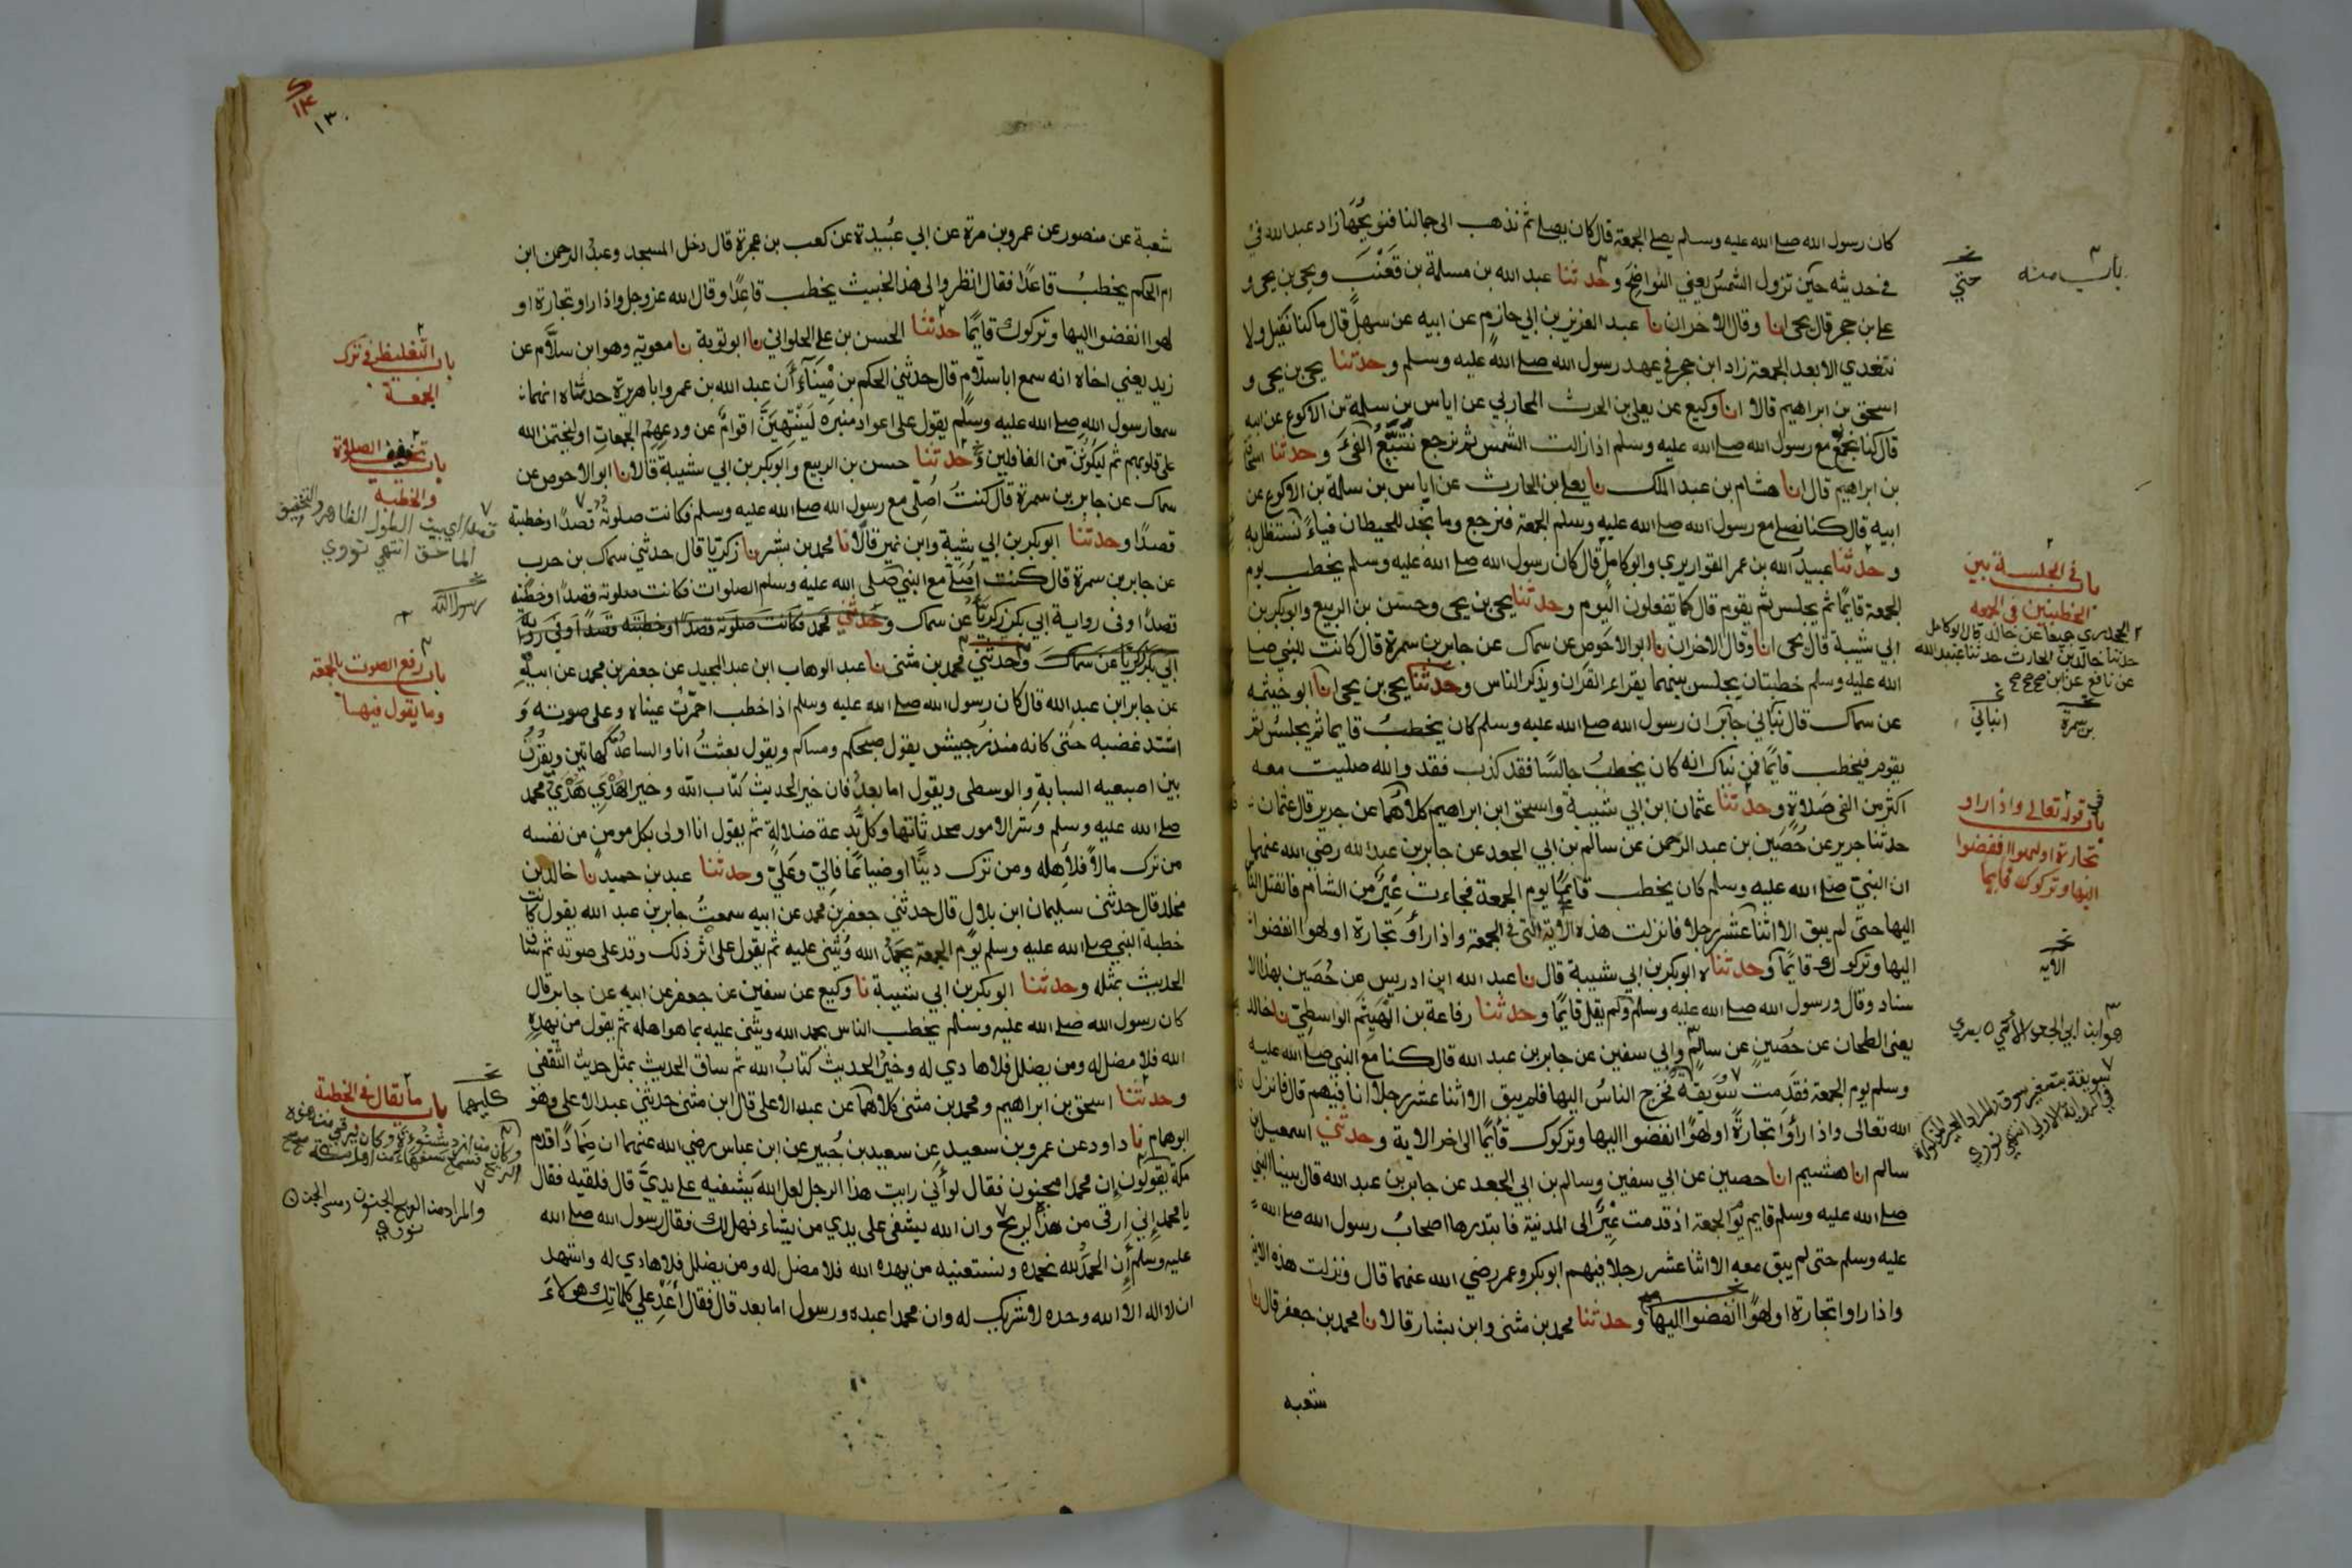 كان رسول الله صلى الله عليه وسلم يصلي الجمعة قال كان يصلي ثم نذهب الى جمالنا فنريحها زاد عبد الله في
في حديثه حين تزول الشمس يعني النواضح وحدثنا عبد الله بن مسلمة بن قعنب ويحيى بن يحيى و
علي بن حجر قال يحيى انا وقال الاخران نا عبد العزيز بن ابي حازم عن ابيه عن سهل قال ما كنا نقيل ولا
نتغدي الا بعد الجمعة زاد ابن حجر في عهد رسول الله صلى الله عليه وسلم وحدثنا يحيى بن يحيى و
اسحق بن ابراهيم قالا انا وكيع عن يعلى بن الحرث المحاربي عن اياس بن سلمة بن الاكوع عن ابيه
قال كنا نجمع مع رسول الله صلى الله عليه وسلم اذا زالت الشمس ثم نرجع نتتبع الفئ وحدثنا اسحاق
بن ابراهيم قال انا هشام بن عبد الملك نا يعلى بن الحارث عن اياس بن سلمة بن الاكوع عن
ابيه قال كنا نصلي مع رسول الله صلى الله عليه وسلم الجمعة فنرجع وما نجد للحيطان فياء نستظل به
وحدثنا عبيد الله بن عمر القواريري وابو كامل قال كان رسول الله صلى الله عليه وسلم يخطب يوم
الجمعة قائما ثم يجلس ثم يقوم قال كما تفعلون اليوم وحدثنا يحيى بن يحيى وحسن بن الربيع وابو بكر بن
ابي شيبة قال يحيى انا وقال الاخران نا ابو الاحوص عن سماك عن جابر بن سمرة قال كانت للنبي صلى
الله عليه وسلم خطبتان يجلس بينهما يقراء القران ويذكر الناس وحدثنا يحيى بن يحيى انا ابو خيثمه
عن سماك قال نباني جابر ان رسول الله صلى الله عليه وسلم كان يخطب قايما ثم يجلس ثم
يقوم فيخطب قائما فمن نباك انه كان يخطب جالسا فقد كذب فقد والله صليت معه
اكثر من الفي صلاة وحدثنا عثمان ابن ابي شيبة واسحق ابن ابراهيم كلاهما عن جرير قال عثمان
حدثنا جرير عن حصين بن عبد الرحمن عن سالم بن ابي الجعد عن جابر بن عبد الله رضي الله عنهما
ان النبي صلى الله عليه وسلم كان يخطب قائما يوم الجمعة فجاءت عير من الشام فانفتل الناس
اليها حتى لم يبق الا اثنا عشر رجلا فانزلت هذه الآية التي في الجمعة واذا رأو تجارة او لهوا انفضوا
اليها وتركوك قائما وحدثناه ابو بكر بن ابي شيبة قال نا عبد الله ابن ادريس عن حصين بهذا الا
سناد وقال ورسول الله صلى الله عليه وسلم ولم يقل قائما وحدثنا رفاعة بن الهيثم الواسطي نا خالد
يعني الطحان عن حصين عن سالم وابي سفين عن جابر بن عبد الله قال كنا مع النبي صلى الله عليه
وسلم يوم الجمعة فقدمت سويقة فخرج الناس اليها فلم يبق الا اثنا عشر رجلا انا فيهم قال فانزل
الله تعالى واذا رأوا تجارة او لهوا انفضوا اليها وتركوك قائما الى اخر الاية وحدثني اسمعيل بن
سالم انا هشيم انا حصين عن ابي سفين وسالم بن ابي الجعد عن جابر بن عبد الله قال بينا النبي
صلى الله عليه وسلم قايم يوم الجمعة اذ قدمت عير الى المدينة فابتدرها اصحاب رسول الله صلى الله
عليه وسلم حتى لم يبق معه الا اثنا عشر رجلا فيهم ابو بكر وعمر رضي الله عنهما قال ونزلت هذه الاية
واذا راوا تجارة او لهوا انفضوا اليها وحدثنا محمد بن مثنى وابن بشار قالا نا محمد بن جعفر قال نا
شعبه
باب منه
حتي
باب في الجلسة بين
الخطبتين في الجمعه
الجحدري جميعا عن خالد قال ابو كامل
حدثنا خالد بن الحارث حدثنا عبيد الله
عن نافع عن ابن
بن سمرة
انباني
باب في قوله تعالى واذا راو
تجارة او لهوا انفضوا
اليها وتركوك قايما
الآيه
هو ابن ابي الجعد
سويقة تصغير سوق والمراد العير المذكورة
في الرواية الاولى انتهى نووي
١٣٠
شعبة عن منصور عن عمرو بن مرة عن ابي عبيدة عن كعب بن عجرة قال دخل المسجد وعبد الرحمن ابن
ام الحكم يخطب قاعدا فقال انظروا الى هذا الخبيث يخطب قاعدا وقال الله عز وجل واذا راو تجارة او
لهوا انفضوا اليها وتركوك قايما حدثنا الحسن بن علي الحلواني نا ابو توبة نا معوية وهو ابن سلام عن
زيد يعني اخاه انه سمع ابا سلام قال حدثني الحكم بن ميناء أن عبد الله بن عمر وابا هريرة حدثاه انهما
سمعا رسول الله صلى الله عليه وسلم يقول على اعواد منبره لينتهين اقوام عن ودعهم الجمعات او ليختمن الله
على قلوبهم ثم ليكونن من الغافلين وحدثنا حسن بن الربيع وابو بكر بن ابي شيبة قالا نا ابو الاحوص عن
سماك عن جابر بن سمرة قال كنت اصلي مع رسول الله صلى الله عليه وسلم فكانت صلوته قصدا وخطبته
قصدا وحدثنا ابو بكر بن ابي شيبة وابن نمير قالا نا محمد بن بشر نا زكريا قال حدثني سماك بن حرب
عن جابر بن سمرة قال كنت اصلي مع النبي صلى الله عليه وسلم الصلوات فكانت صلوته قصدا وخطبته
قصدا وفي رواية ابي بكر زكريا عن سماك وحدثني محمد فكانت صلوته قصدا وخطبته قصدا وفي رواية
ابي بكر زكريا عن سماك وحدثني محمد بن مثنى نا عبد الوهاب ابن عبد المجيد عن جعفر بن محمد عن ابيه
عن جابر ابن عبد الله قال كان رسول الله صلى الله عليه وسلم اذا خطب احمرت عيناه وعلى صوته و
اشتد غضبه حتى كانه منذر جيش يقول صبحكم ومساكم ويقول بعثت انا والساعة كهاتين ويقرن
بين اصبعيه السبابة والوسطى ويقول اما بعد فان خير الحديث كتاب الله وخير الهدي هدي محمد
صلى الله عليه وسلم وشر الامور محدثاتها وكل بدعة ضلالة ثم يقول انا اولى بكل مومن من نفسه
من ترك مالا فلاهله ومن ترك دينا او ضياعا فالي وعلي وحدثنا عبد بن حميد نا خالد بن
مخلد قال حدثني سليمان ابن بلال قال حدثني جعفر بن محمد عن ابيه سمعت جابر بن عبد الله يقول كانت
خطبة النبي صلى الله عليه وسلم يوم الجمعة يحمد الله ويثني عليه ثم يقول على اثر ذلك وقد على صوته ثم ساق
الحديث بمثله وحدثنا ابو بكر بن ابي شيبة نا وكيع عن سفين عن جعفر عن ابيه عن جابر قال
كان رسول الله صلى الله عليه وسلم يخطب الناس يحمد الله ويثني عليه بما هو اهله ثم يقول من يهده
الله فلا مضل له ومن يضلل فلا هادي له وخير الحديث كتاب الله ثم ساق الحديث بمثل حديث الثقفي
وحدثنا اسحق بن ابراهيم ومحمد بن مثنى كلاهما عن عبد الاعلى قال ابن مثنى حدثني عبد الاعلى وهو
ابو همام نا داود عن عمرو بن سعيد عن سعيد بن جبير عن ابن عباس رضي الله عنهما ان ضمادا قدم
مكة يقولون إن محمدا مجنون فقال لو أني رايت هذا الرجل لعل الله يشفيه على يدي قال فلقيه فقال
يا محمد إني ارقي من هذا الريح وان الله يشفي على يدي من يشاء فهل لك فقال رسول الله صلى الله
عليه وسلم أن الحمد لله نحمده ونستعينه من يهده الله فلا مضل له ومن يضلل فلا هادي له واشهد
ان لا اله الا الله وحده لا شريك له وان محمدا عبده ورسوله اما بعد قال فقال أعد علي كلماتك هولاء
باب التغليظ في ترك
الجمعة
باب تخفيف الصلاة
والخطبه
قصدا اي بين الطول الظاهر والتخفيف
الماحق انتهى نووي
رسول الله
باب رفع الصوت بالجمعة
وما يقول فيها
كليهما
باب ما يقال في الخطبة
وكان من ازد شنوءة وكان يرقي من هذه
الريح فسمع سفهاء من اهل مكة
والمراد من الريح الجنون ومس الجن
نووي